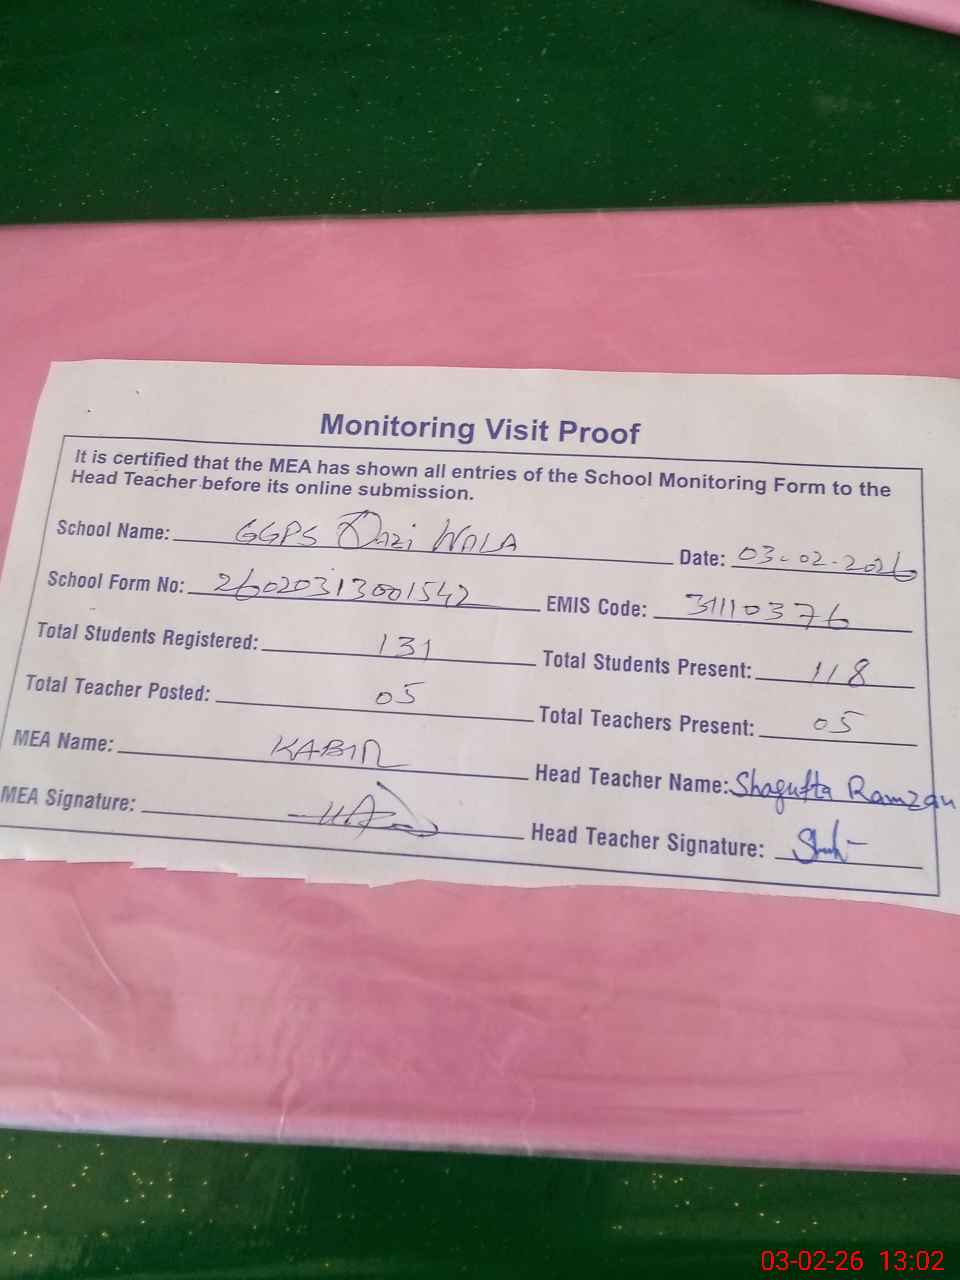 Monitoring Visit Proof
It is certified that the MEA has shown all entries of the School Monitoring Form to the
Head Teacher before its online submission.
School Name: GGPS Qazi WALA Date: 03-02-2026
School Form No: 26020313001542 EMIS Code: 31110376
Total Students Registered: 131 Total Students Present: 118
Total Teacher Posted: 05 Total Teachers Present: 05
MEA Name: KABIR Head Teacher Name: Shagufta Ramzan
MEA Signature: Head Teacher Signature:
03-02-26 13:02